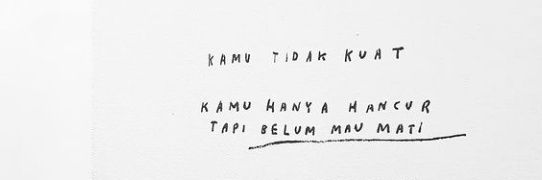 KAMU TIDAK KUAT
KAMU HANYA HANCUR
TAPI BELUM MAU MATI